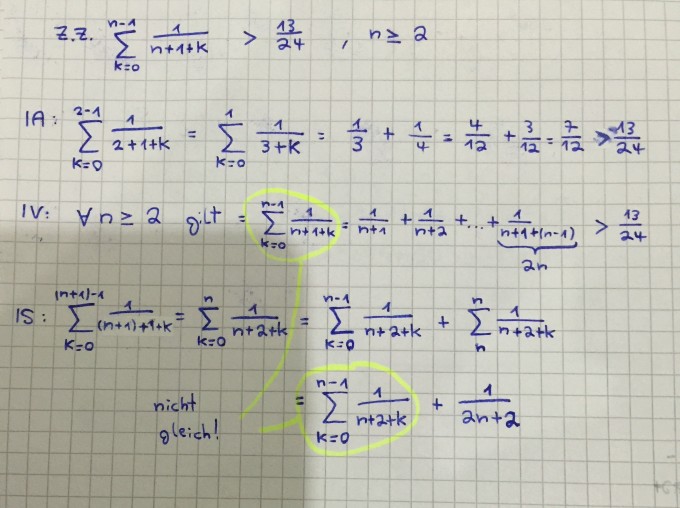 Z.Z. \sum_{k=0}^{n-1} \frac{1}{n+1+k} > \frac{13}{24} , n ≥ 2
IA: \sum_{k=0}^{2-1} \frac{1}{2+1+k} = \sum_{k=0}^{1} \frac{1}{3+k} = \frac{1}{3} + \frac{1}{4} = \frac{4}{12} + \frac{3}{12} = \frac{7}{12} > \frac{13}{24}
IV: ∀ n ≥ 2 gilt = \sum_{k=0}^{n-1} \frac{1}{n+1+k} = \frac{1}{n+1} + \frac{1}{n+2} + ... + \frac{1}{\underbrace{n+1+(n-1)}_{2n}} > \frac{13}{24}
IS: \sum_{k=0}^{(n+1)-1} \frac{1}{(n+1)+1+k} = \sum_{k=0}^{n} \frac{1}{n+2+k} = \sum_{k=0}^{n-1} \frac{1}{n+2+k} + \sum_{n}^{n} \frac{1}{n+2+k}
= \sum_{k=0}^{n-1} \frac{1}{n+2+k} + \frac{1}{2n+2}
nicht
gleich!